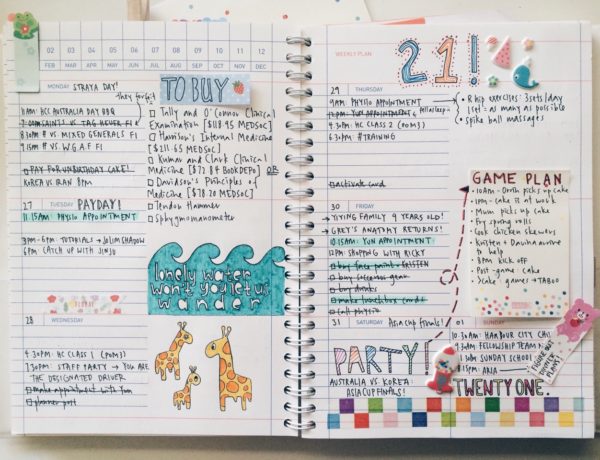 02 03 04 05 06 07 08 09 10 11 12
FEB MAR APR MAY JUN JUL AUG SEP OCT NOV DEC
MONDAY STRAYA DAY!
they forfeit
11am: HCC AUSTRALIA DAY BBQ
8:30pm B vs MIXED GENERALS F1
9:15pm B vs W.G.A.F F1
PAY FOR UNBIRTHDAY CAKE!
KOREA VS IRAN 8pm
27 TUESDAY PAYDAY!
11.15AM: PHYSIO APPOINTMENT
3pm-6pm: TUTORIALS → SOLUM SHADOW
6pm: CATCH UP WITH JINJU
28
WEDNESDAY
4.30pm: HC CLASS 1 (ROOM3)
7.30pm: STAFF PARTY → YOU ARE
THE DESIGNATED DRIVER
make appointment with Yun
planner post
TO BUY
Tally and O'Connor Clinical
Examination [$118.95 MEDSOC]
Harrison's Internal Medicine
[$211.65 MEDSOC]
Kumar and Clark Clinical
Medicine [$72.84 BOOKDEPO] OR
Davidson's Principles of
Medicine [$78.20 MEDSOC]
Tendon Hammer
Sphygmomanometer
lonely water
won't you let us
wander
WEEKLY PLAN
21!
29 THURSDAY
9AM: PHYSIO APPOINTMENT
12pm: YUN APPOINTMENT
4.30pm: HC CLASS 2 (ROOM3)
6.30pm: #TRAINING
R hip exercises: 3sets/day
1set = as many as possible
spike ball massages
activate card
30 FRIDAY
→ TYING FAMILY 9 YEARS OLD!
→ GREY'S ANATOMY RETURNS!
10.15AM: YUN APPOINTMENT
12pm: SHOPPING WITH RICKY
buy face paint → KRISTEN
buy drinks
call physio
GAME PLAN
10AM - Dorth picks up cake
1pm - cake is at work
Mum picks up cake
Fry spring rolls
Cook chicken skewers
to help
8pm kick off
Post-game cake
?cake + games → TABOO
31 SATURDAY Asia cup finals!
PARTY!
AUSTRALIA VS. KOREA
ASIA CUP FINALS!
01 SUNDAY
10.30am: HARBOUR CITY CHU
9.30am: FELLOWSHIP TEAM
1.30pm SUNDAY SCHOOL
FIGURE OUT
DINNER
PLANS
TWENTY ONE.